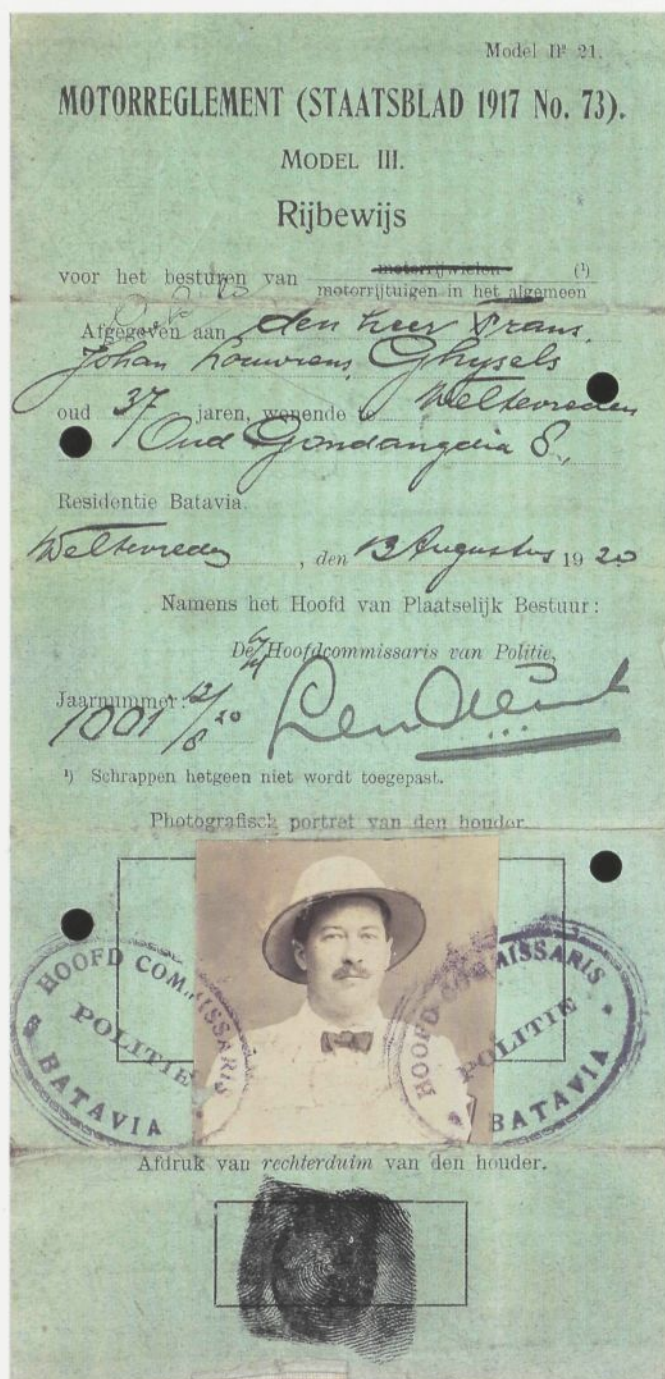 Model Nº 21.
MOTORREGLEMENT (STAATSBLAD 1917 No. 73).
MODEL III.
Rijbewijs
voor het besturen van motorrijwielen (¹)
motorrijtuigen in het algemeen
Afgegeven aan den heer Frans,
Johan Louwrens, Ghijsels
oud 37 jaren, wonende te Weltevreden
Oud Gondangdia 8.,
Residentie Batavia.
Weltevreden, den 13 Augustus 1920
Namens het Hoofd van Plaatselijk Bestuur:
De Hoofdcommissaris van Politie,
Jaarnummer: 12/8 20
1001
¹) Schrappen hetgeen niet wordt toegepast.
Photografisch portret van den houder.
HOOFD COMMISSARIS
POLITIE
BATAVIA
HOOFD COMMISSARIS
POLITIE
BATAVIA
Afdruk van rechterduim van den houder.